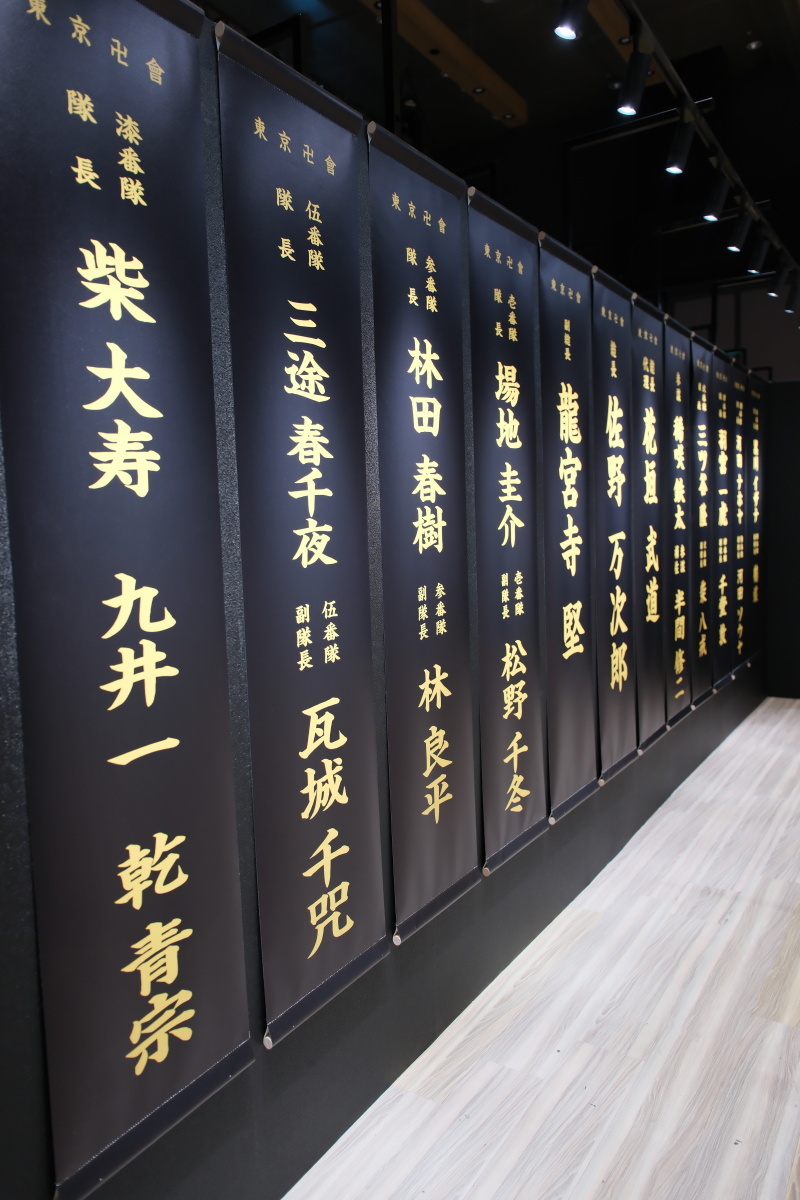 東京卍會
漆番隊
隊長
柴 大寿
九井 一
乾 青宗
東京卍會
伍番隊
隊長
三途 春千夜
伍番隊
副隊長
瓦城 千咒
東京卍會
参番隊
隊長
林田 春樹
参番隊
副隊長
林 良平
東京卍會
壱番隊
隊長
場地 圭介
壱番隊
副隊長
松野 千冬
東京卍會
副総長
龍宮寺 堅
東京卍會
総長
佐野 万次郎
東京卍會
総長
代理
花垣 武道
東京卍會
参謀
稀咲 鉄太
半間 修二
三ツ谷 隆
柴 八戒
羽宮 一虎
千堂 敦
河田 ナホヤ
河田 ソウヤ